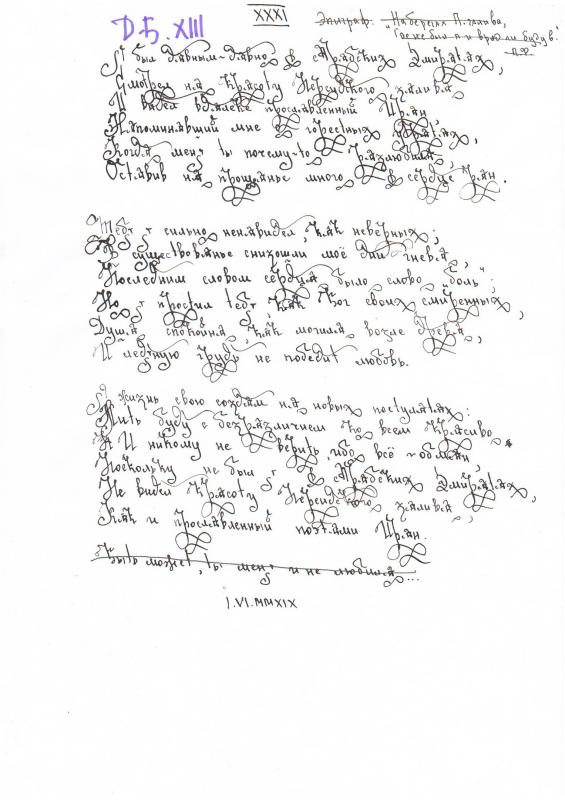 XXXI
Д.Б. XIII
Эпиграф: "На берегах П. залива,
Где не был я и вряд ли буду."
Я был давным-давно в Арабских Эмиратах,
Смотрел на красоту Персидского залива
И видел вдалеке прославленный Иран,
Напоминавший мне о горестных утратах,
Когда меня ты почему-то разлюбила,
Оставив на прощанье много в сердце ран.
Тебя я сильно ненавидел, как неверных;
В существованье снизошли мои дни гнева,
Последним словом сердца было слово "боль";
Но я простил тебя, как Бог своих смиренных,
Душа спокойна, как могила возле древа,
И ледяную грудь не победит любовь.
Я жизнь свою создам на новых постулатах:
Жить буду с безразличием ко всем красиво
И никому не верить, ибо всё - обман,
Поскольку не был я в Арабских Эмиратах,
Не видел красоту Персидского залива,
Как и прославленный поэтами Иран.
Быть может, ты меня и не любила...
I.VI.MMXIX